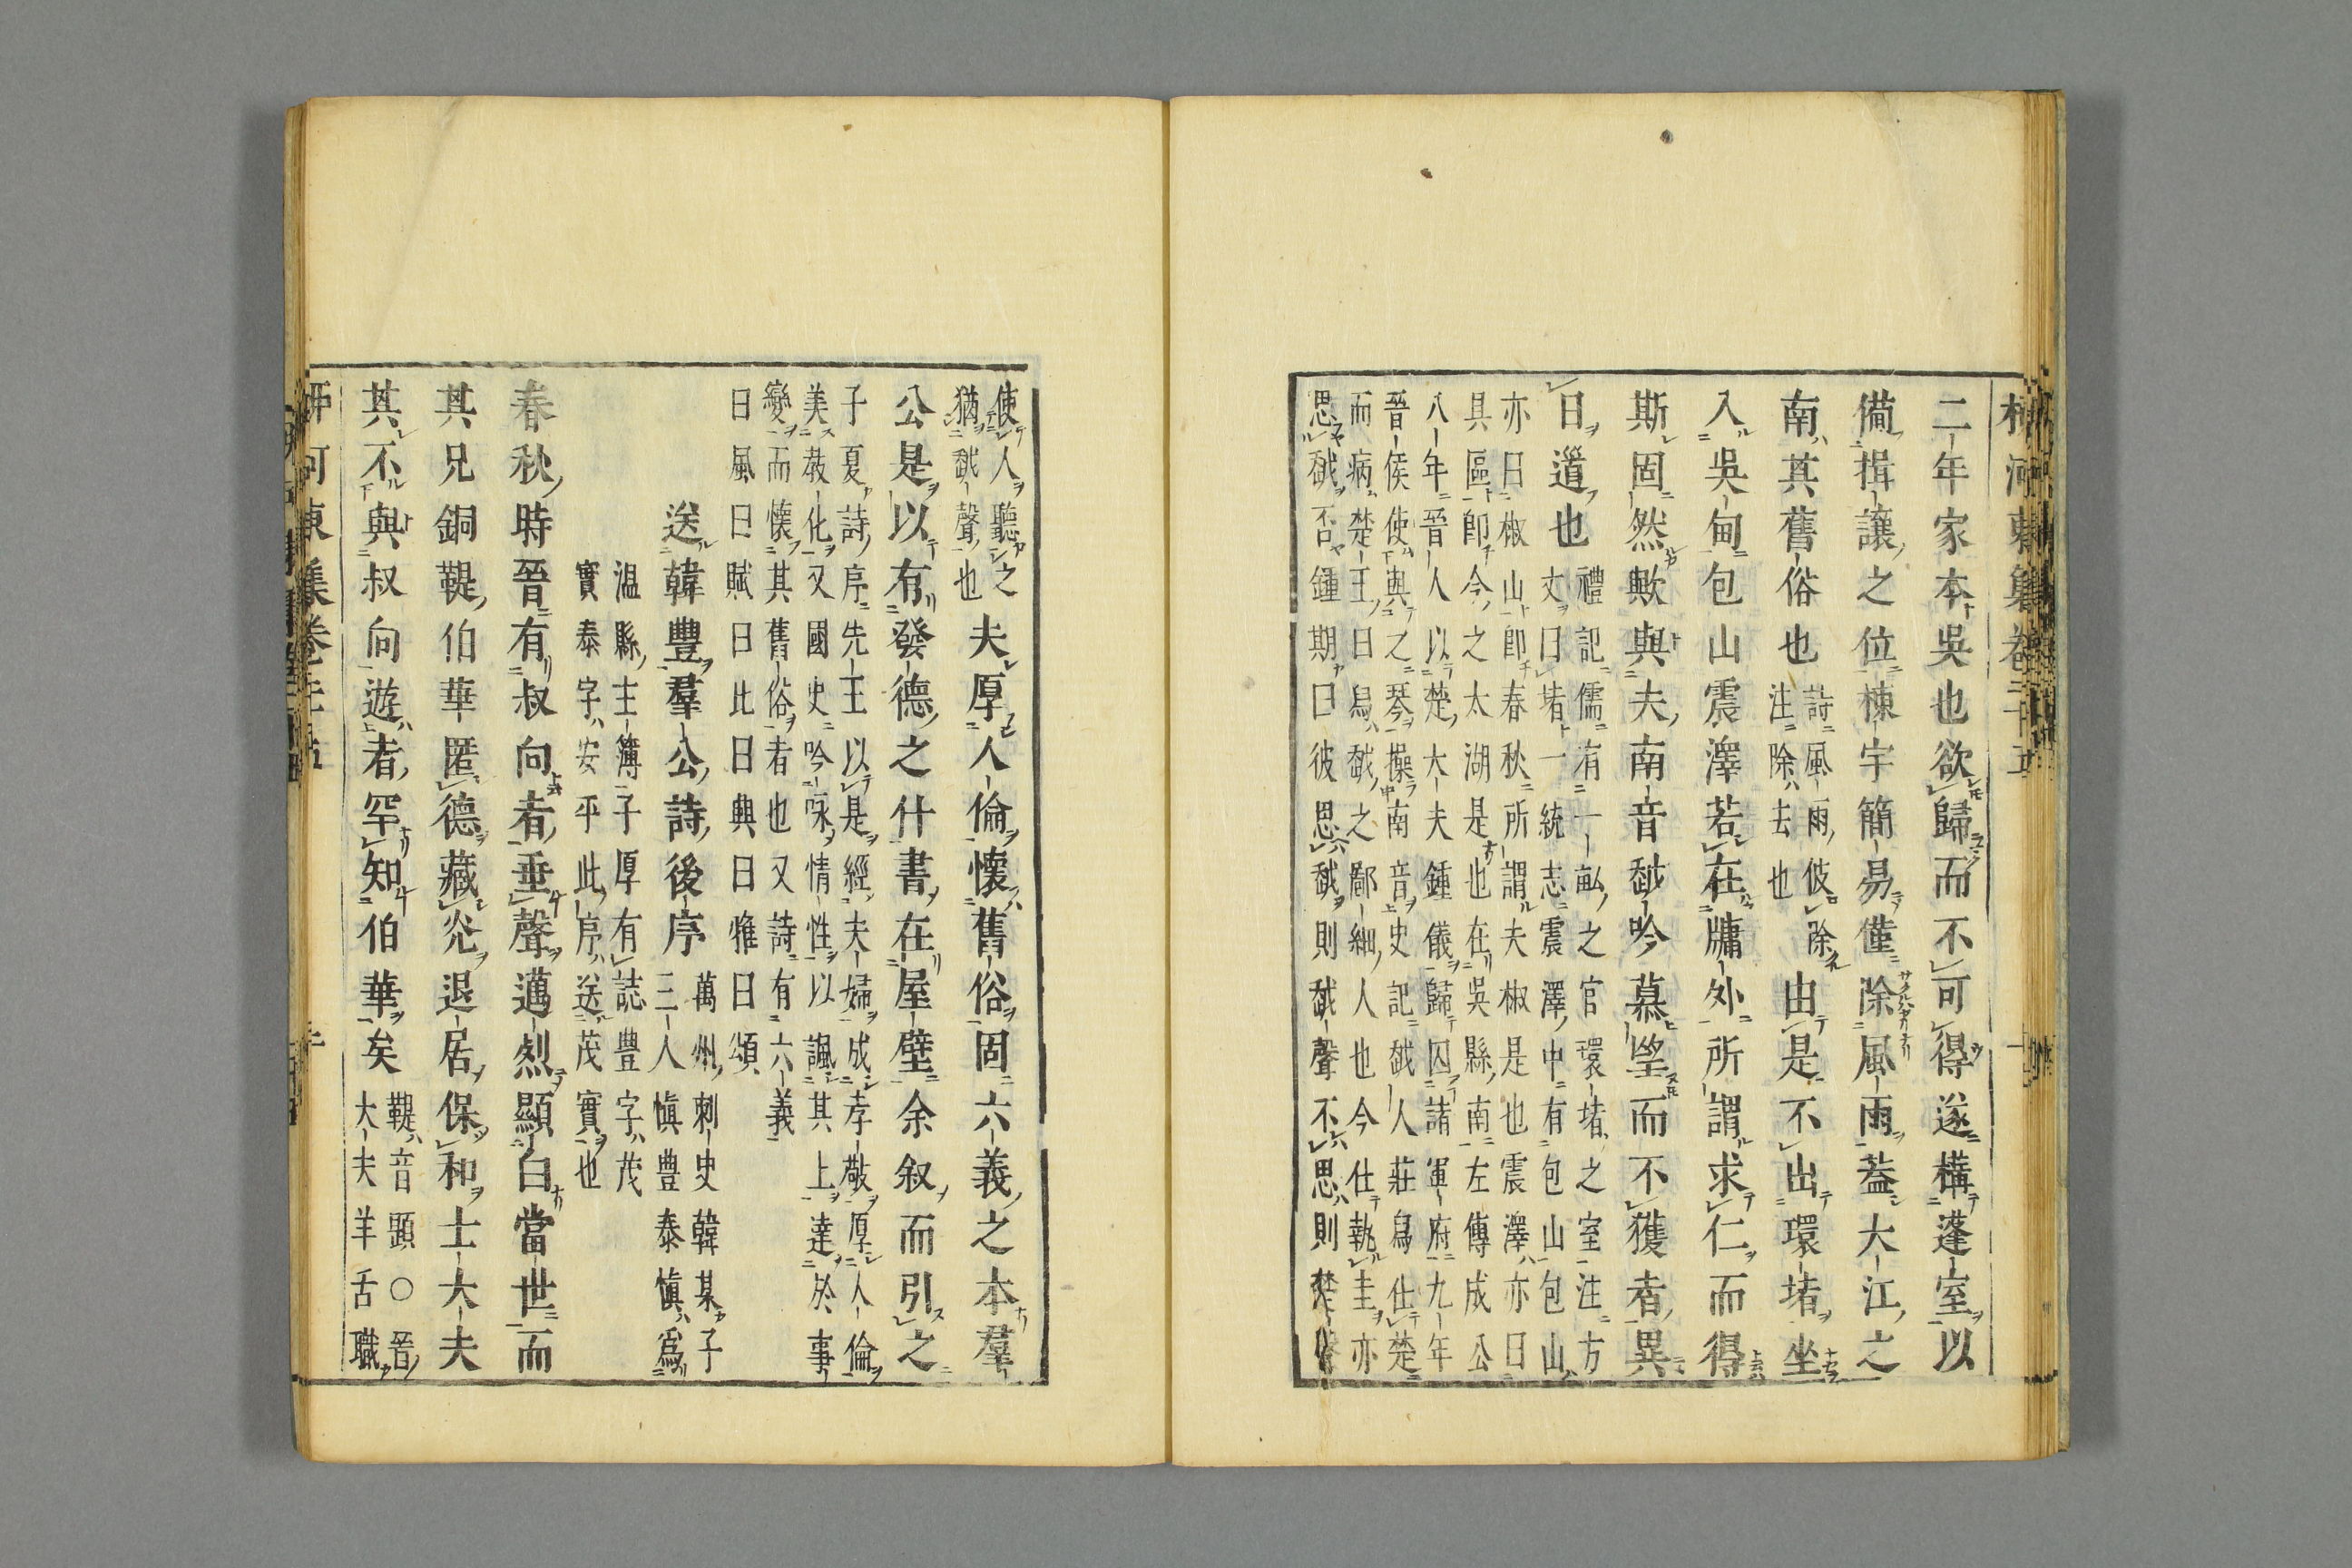 二年家本吳也欲歸而不可得遂構蓬室以
備揖讓之位棟宇簡易僅除風雨蓋大江之
南其舊俗也 詩風雨攸除
注除去也 由是不出環堵坐
入吳甸包山震澤若在牖外所謂求仁而得
斯固然歟與夫南音越吟慕望而不獲者異
日道也 禮記儒有一畝之官環堵之室注方
丈曰堵一統志震澤中有包山包山
亦曰椒山卽春秋所謂夫椒是也震澤亦曰
具區卽今之太湖是也在吳縣南左傳成公
八年晉人以楚大夫鍾儀歸囚諸軍府九年
晉侯使與之琴操南音史記越人莊舄仕楚
而病楚王曰舄越之鄙細人也今仕執圭亦
思越否鍾期曰彼思越則越聲不思則楚聲
使人聽之
猶越聲也 夫厚人倫懷舊俗固六義之本羣
公是以有發德之什書在屋壁余叙而引之
子夏詩序先王以是經夫婦成孝敬厚人倫
美敎化又國史吟咏情性以諷其上達於事
變而懷其舊俗者也又詩有六義
曰風曰賦曰比曰興曰雅曰頌
送韓豐羣公詩後序 萬州刺史韓某子
三人愼豐泰愼爲
温縣主簿子厚有誌豐字茂
實泰字安平此序送茂實也
春秋時晉有叔向者垂聲邁烈顯白當世而
其兄銅鞮伯華匿德藏光退居保和士大夫
其不與叔向遊者罕知伯華矣 鞮音顕○晉
大夫羊舌職